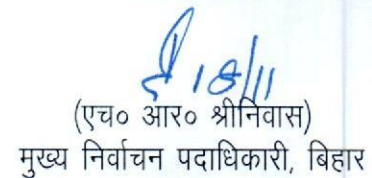 18/11
(एच० आर० श्रीनिवास)
मुख्य निर्वाचन पदाधिकारी, बिहार